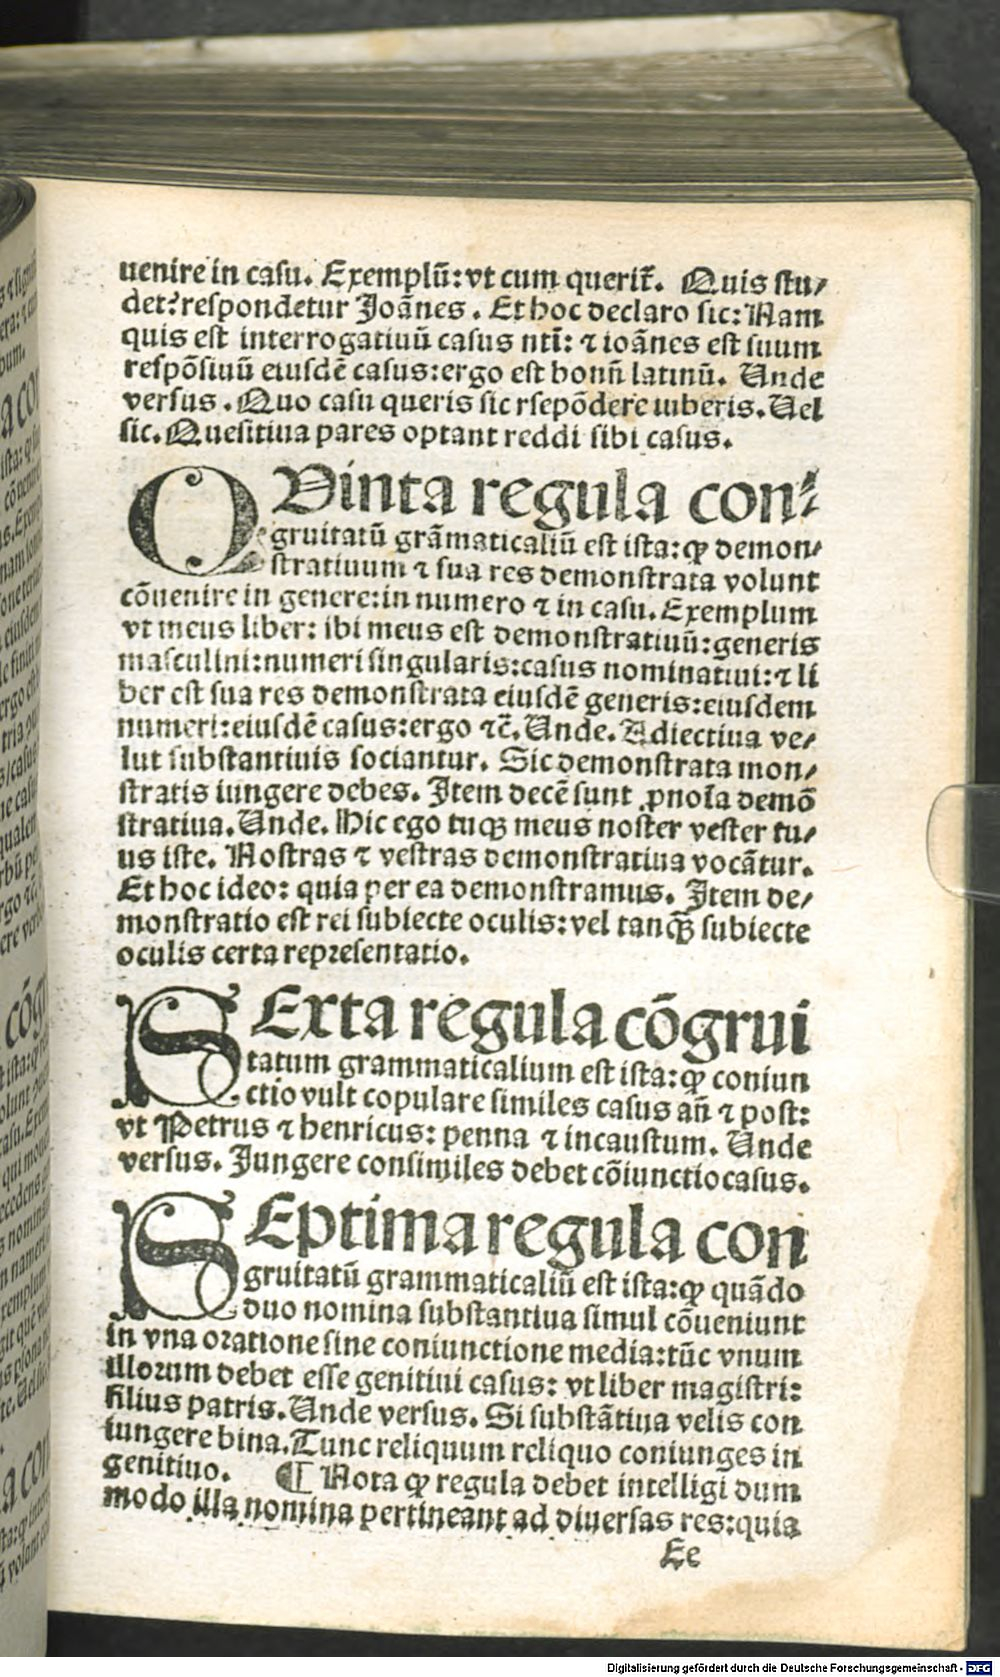 uenire in casu. Exemplū: vt cum querit̄. Quis stu⸗
det? respondetur Joānes. Et hoc declaro sic: Nam
quis est interrogatiuū casus ntī: ⁊ ioānes est suum
respōsiuū eiusdē casus: ergo est bonū latinū. Unde
versus. Quo casu queris sic rsepōdere iuberis. Uel
sic. Quesitiua pares optant reddi sibi casus.
QVinta regula con⸗
gruitatū grāmaticaliū est ista: ꝙ demon⸗
stratiuum ⁊ sua res demonstrata volunt
cōuenire in genere: in numero ⁊ in casu. Exemplum
vt meus liber: ibi meus est demonstratiuū: generis
masculini: numeri singularis: casus nominatiui: ⁊ li
ber est sua res demonstrata eiusdē generis: eiusdem
numeri: eiusdē casus: ergo ⁊c̄. Unde. Adiectiua ve⸗
lut substantiuis sociantur. Sic demonstrata mon⸗
stratis iungere debes. Item decē sunt ꝓnoīa demō
stratiua. Unde. Hic ego tuqꝫ meus noster vester tu⸗
us iste. Nostras ⁊ vestras demonstratiua vocātur.
Et hoc ideo: quia per ea demonstramus. Item de⸗
monstratio est rei subiecte oculis: vel tanqꝫ̄ subiecte
oculis certa representatio.
SExta regula cōgrui
tatum grammaticalium est ista: ꝙ coniun
ctio vult copulare similes casus añ ⁊ post:
vt Petrus ⁊ henricus: penna ⁊ incaustum. Unde
versus. Jungere consimiles debet cōiunctio casus.
SEptima regula con
gruitatū grammaticaliū est ista: ꝙ quādo
duo nomina substantiua simul cōueniunt
in vna oratione sine coniunctione media: tūc vnum
illorum debet esse genitiui casus: vt liber magistri:
filius patris. Unde versus. Si substātiua velis con
iungere bina. Tunc reliquum reliquo coniunges in
genitiuo. ¶ Nota ꝙ regula debet intelligi dum
modo illa nomina pertineant ad diuersas res: quia
Ee
Digitalisierung gefördert durch die Deutsche Forschungsgemeinschaft - DFG